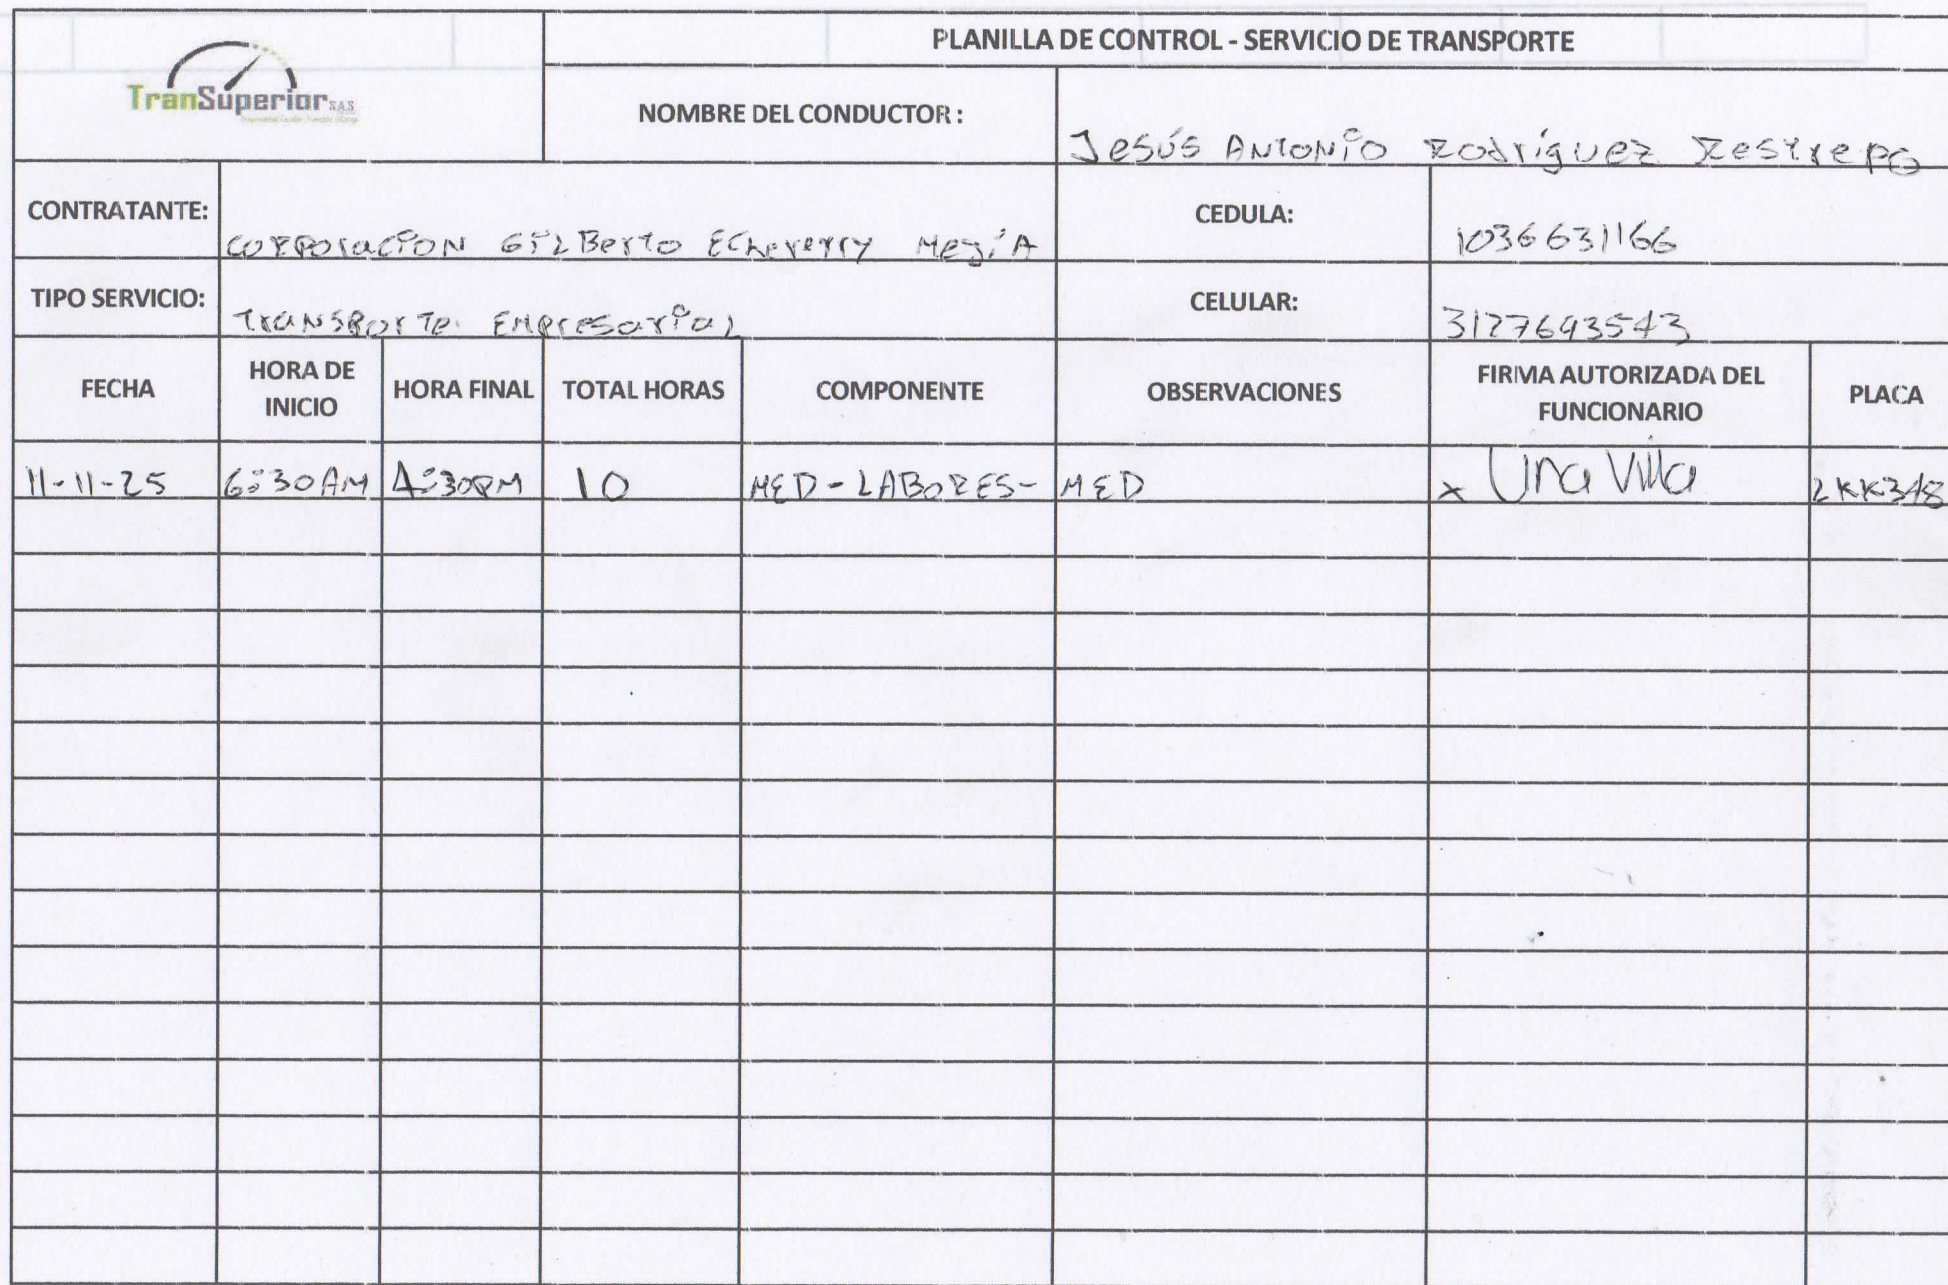 PLANILLA DE CONTROL - SERVICIO DE TRANSPORTE
TranSuperior S.A.S
NOMBRE DEL CONDUCTOR :
Jesús Antonio Rodríguez Restrepo
CONTRATANTE:
corporacion Gilberto Echeverry Mejía
CEDULA:
1036631166
TIPO SERVICIO:
Transporte Empresarial
CELULAR:
3127693543
FECHA HORA DE INICIO HORA FINAL TOTAL HORAS COMPONENTE OBSERVACIONES FIRMA AUTORIZADA DEL FUNCIONARIO PLACA
11-11-25 6:30AM 4:30PM 10 MED-LABORES- MED x Villa KK348